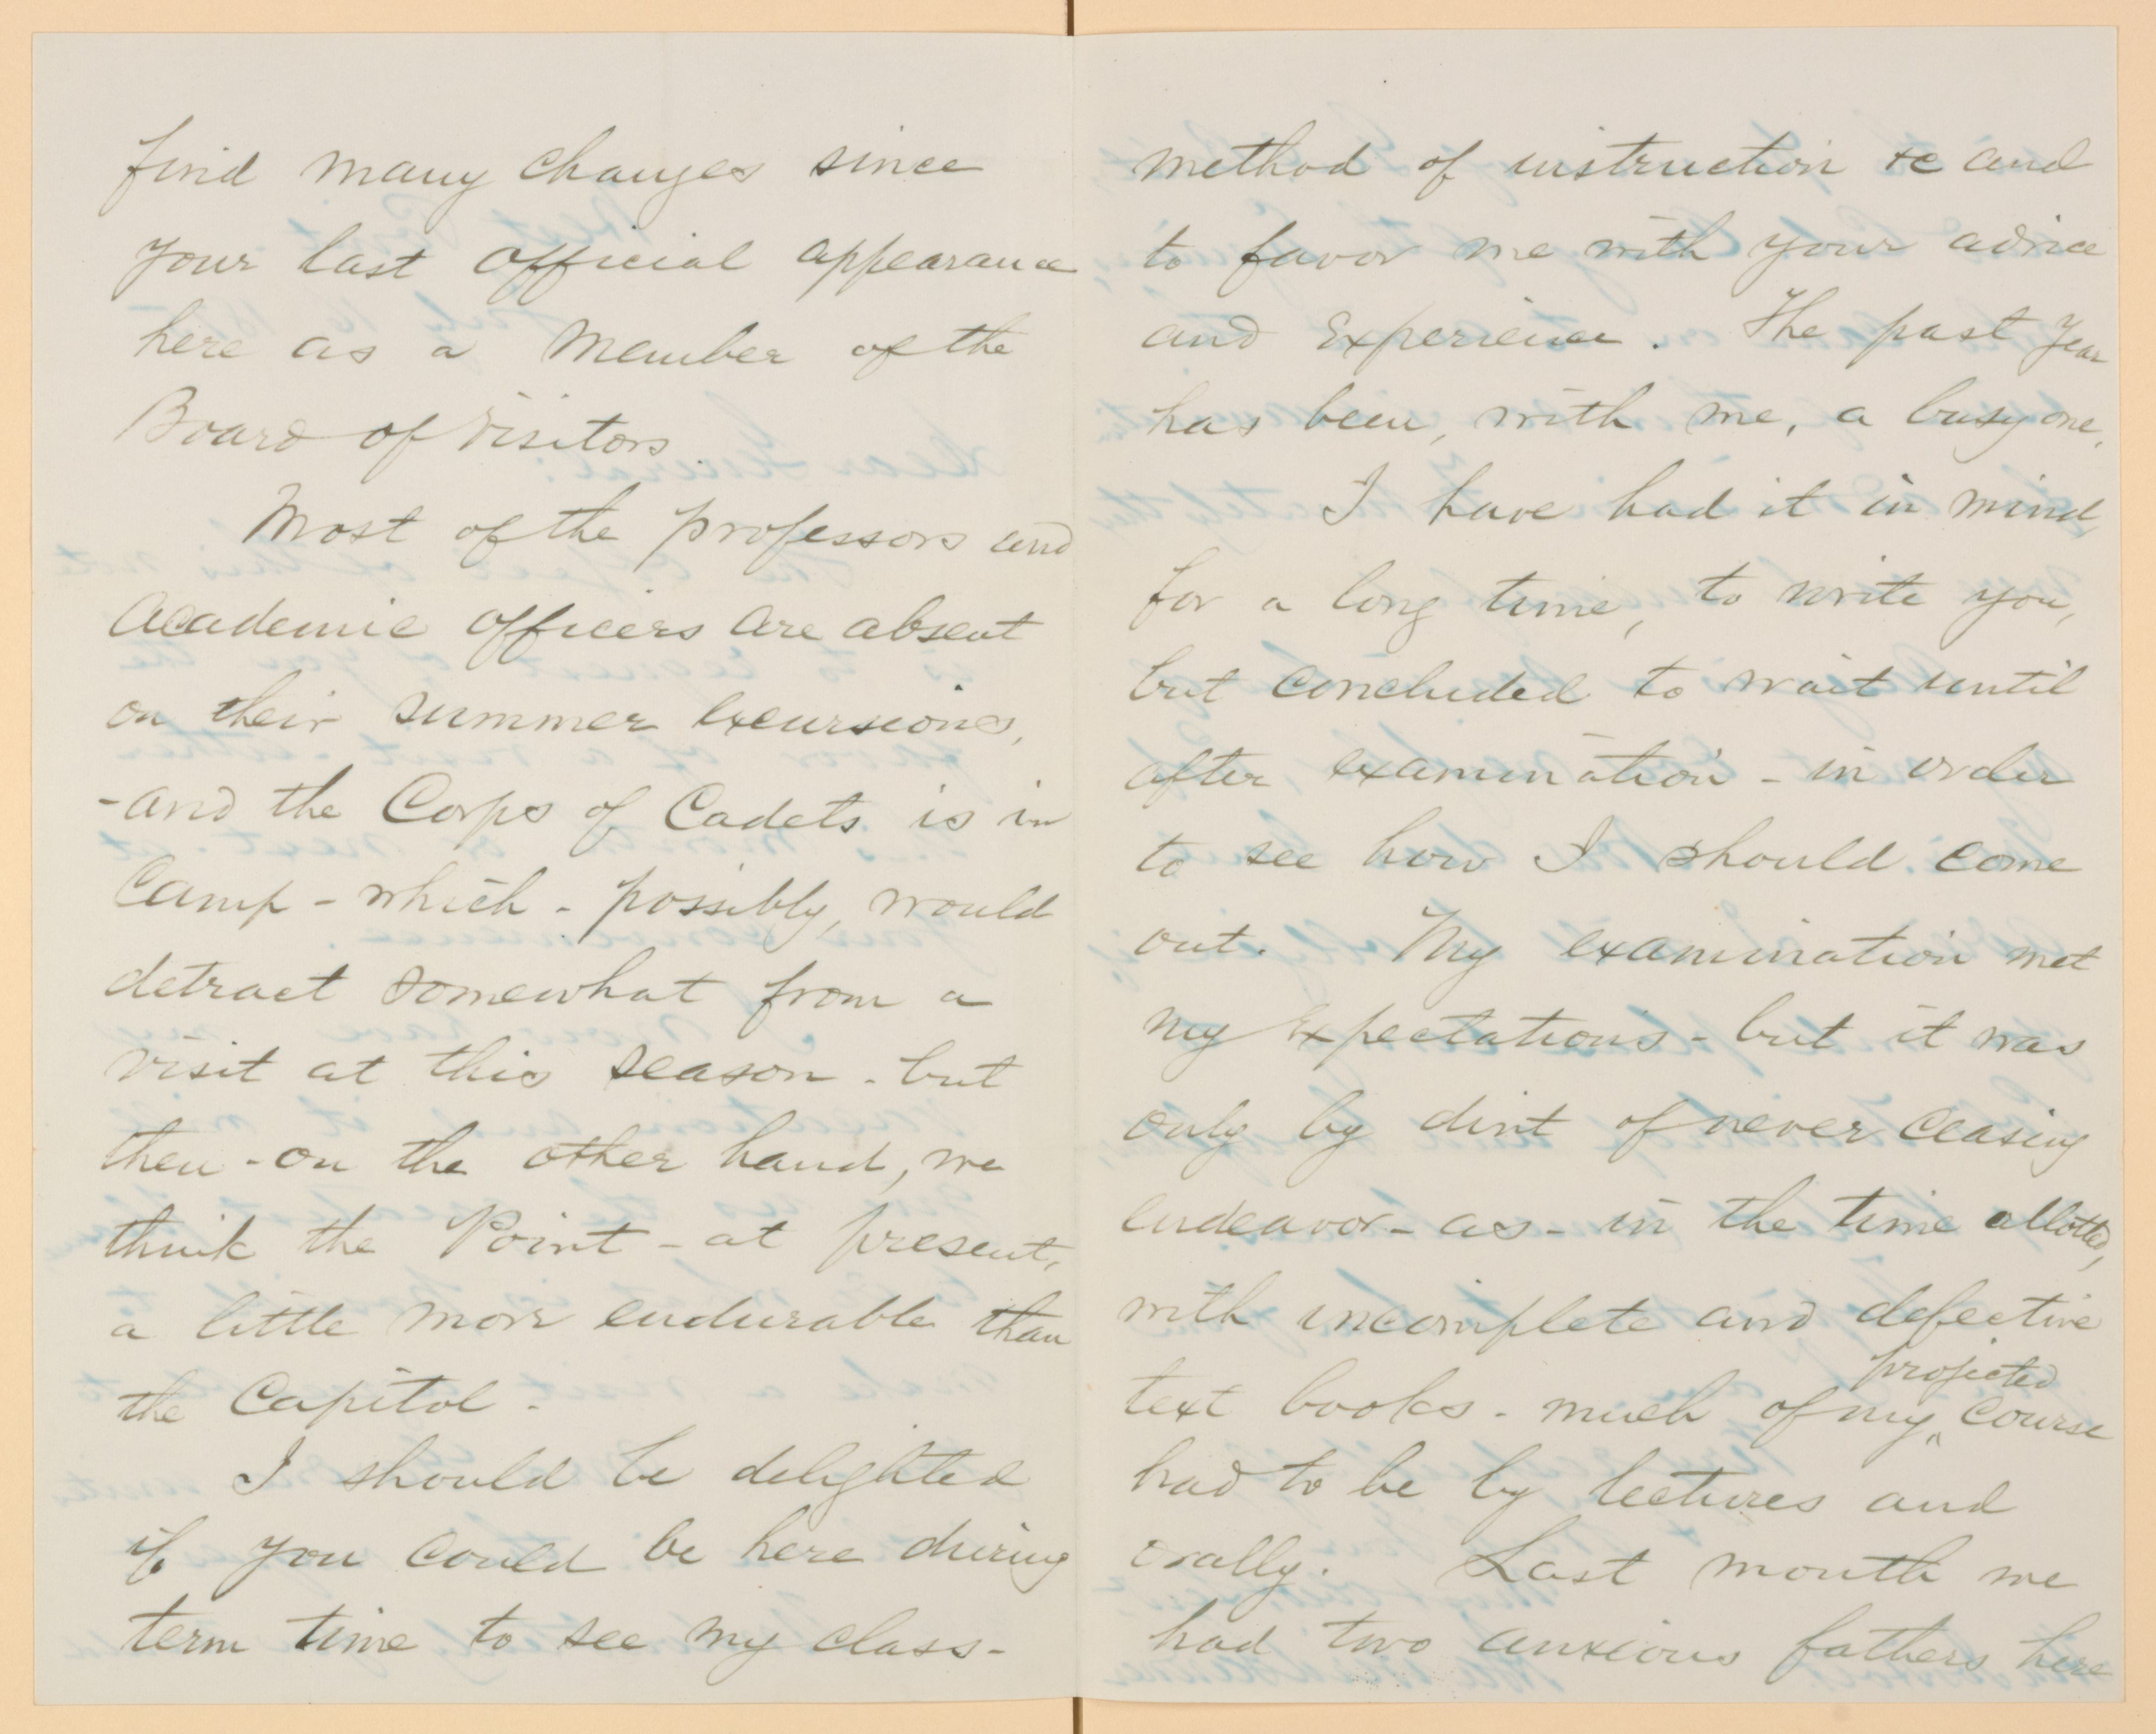 find many changes since
your last official appearance
here as a Member of the
Board of Visitors.
Most of the professors and
Academic officers are absent
on their summer excursions,
- and the Corps of Cadets is in
Camp - which - possibly, would
detract somewhat from a
visit at this season - but
then - on the other hand, we
think the Point - at present,
a little more endurable than
the Capitol.
I should be delighted
if you could be here during
term time to see my class-
method of instruction &c and
to favor me with your advice
and Experience. The past year
has been, with me, a busy one.
I have had it in mind,
for a long time, to write you,
but concluded to wait until
after examination - in order
to see how I should come
out. My examination met
my Expectations - but it was
only by dint of never ceasing
endeavor - as - in the time allotted,
with incomplete and defective
projected
text books - much of my ‸ course
had to be by lectures and
orally. Last month we
had two anxious fathers here